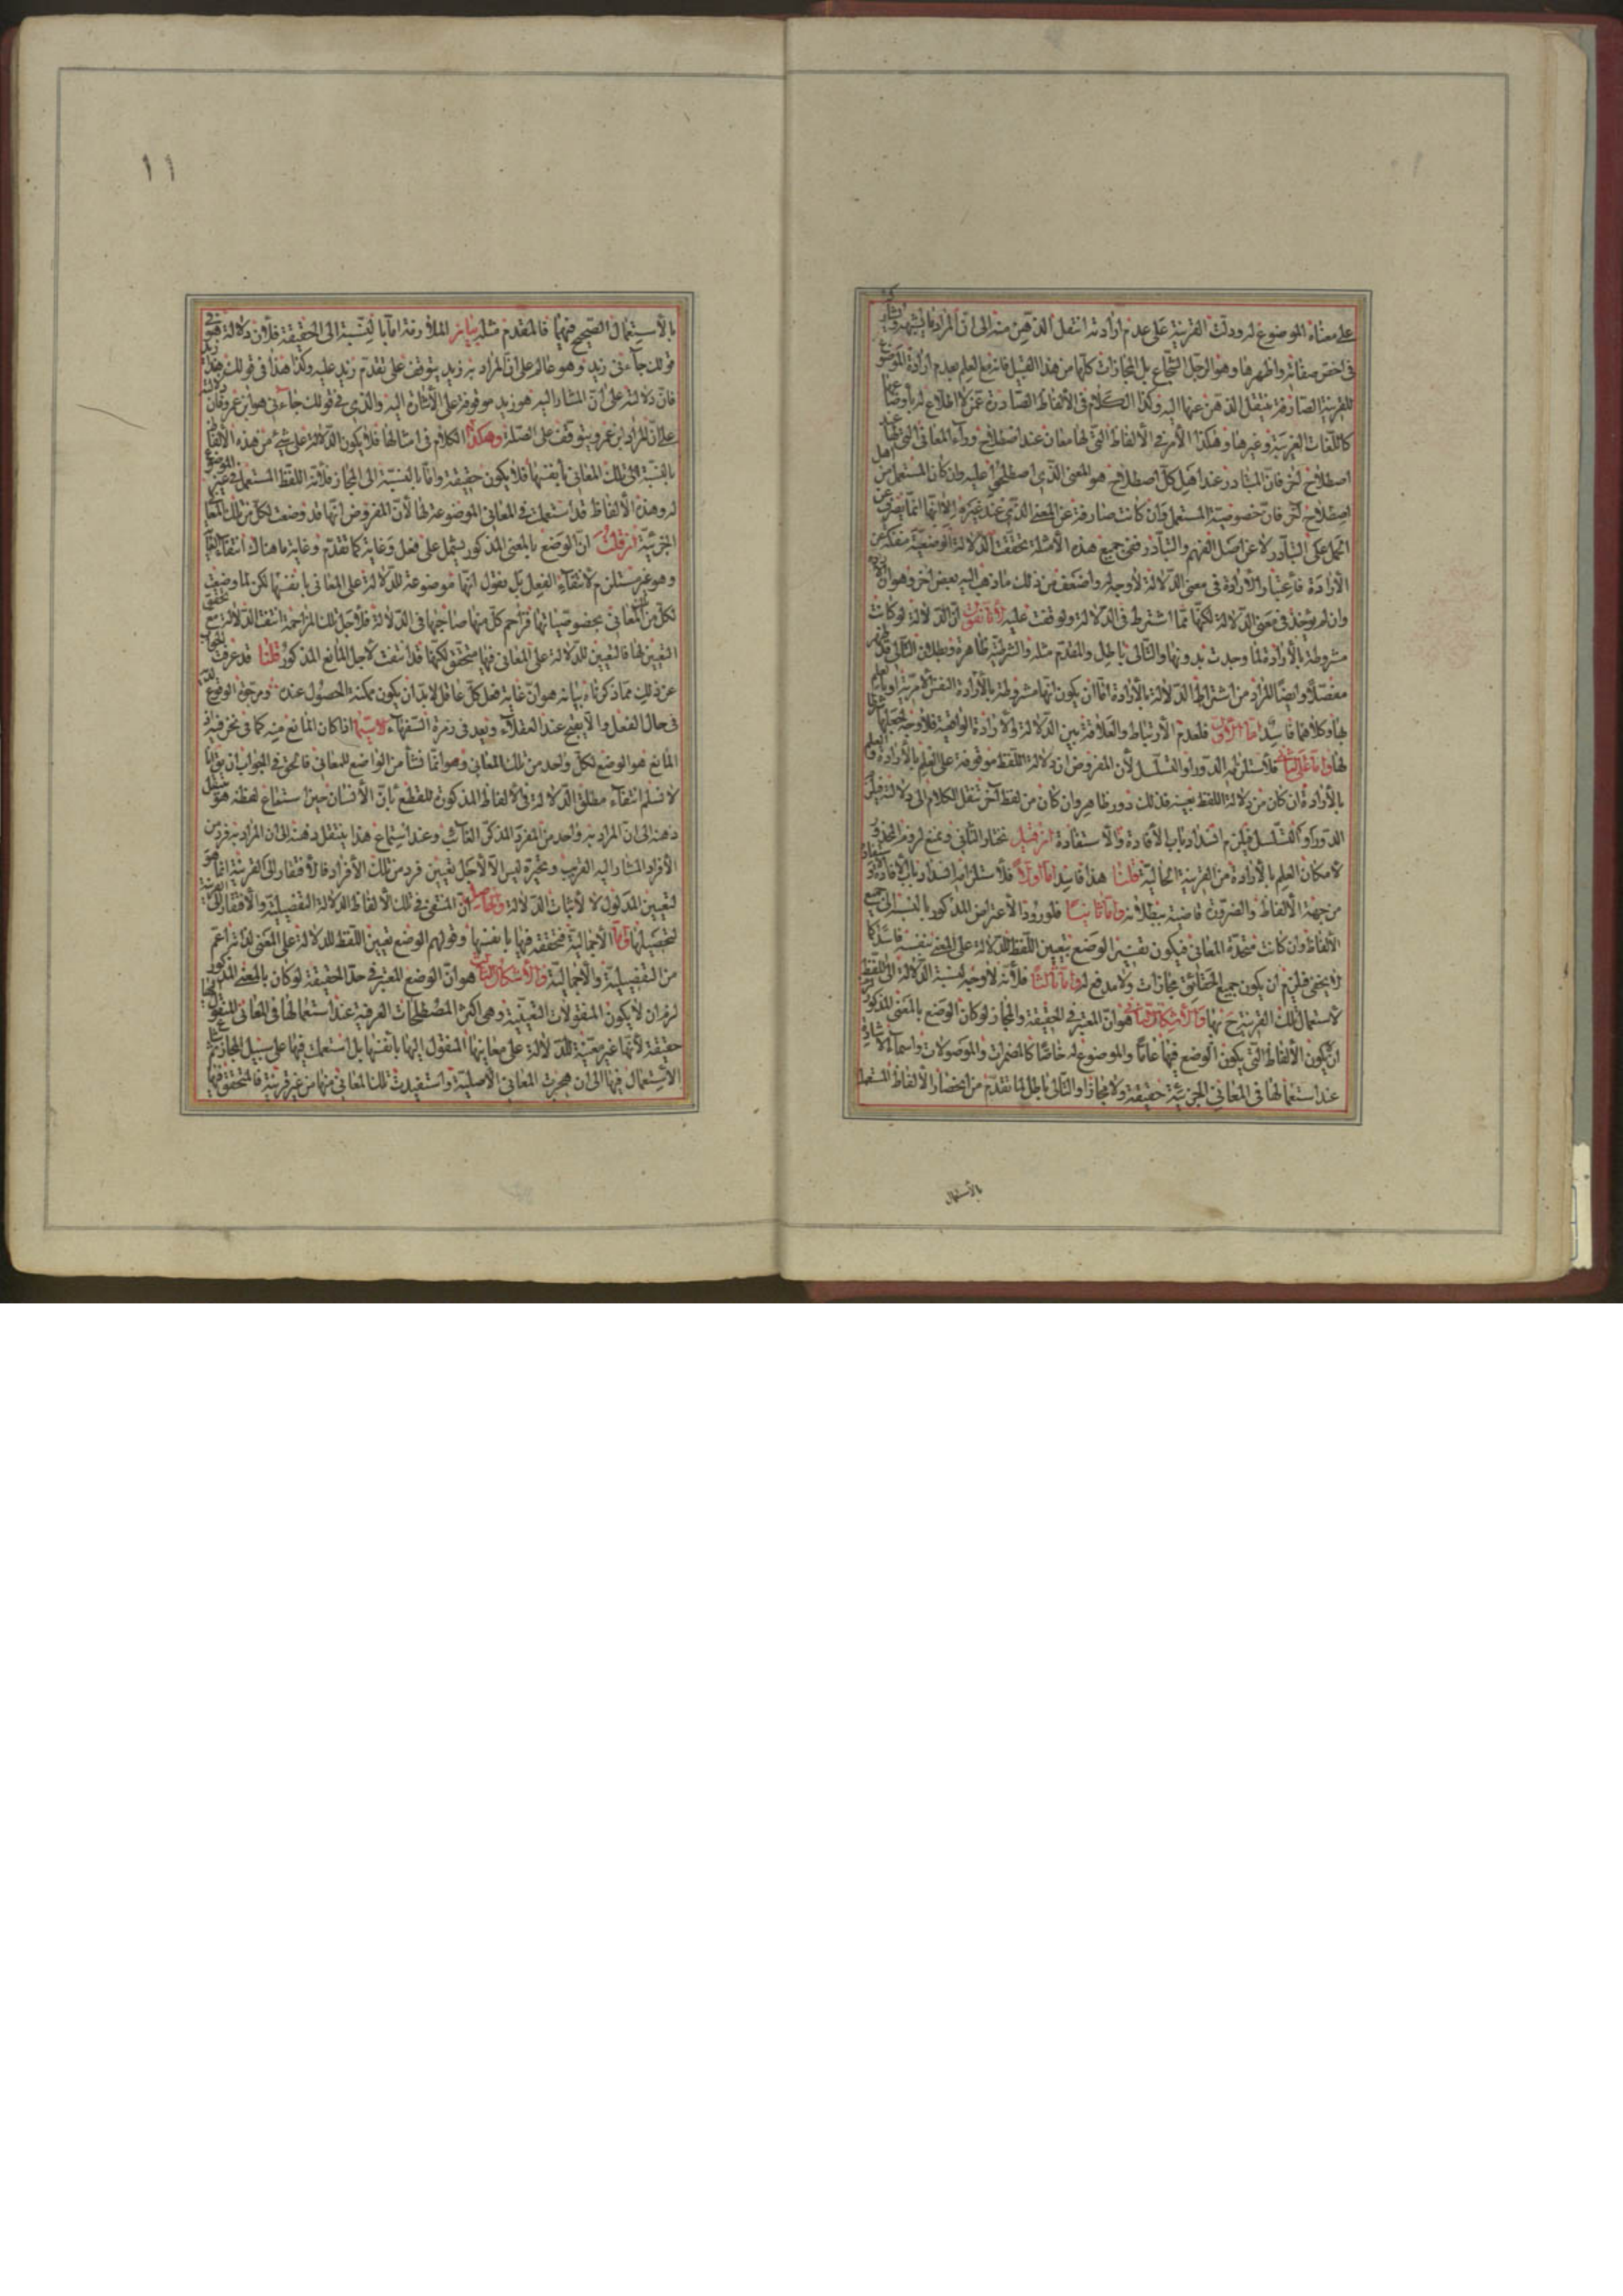 على معناه الموضوع له ودلت القرينة على عدم ارادته انتقل الذهن منه الى ان المراد ما يشبهه ويشاركه
في اخص صفاته واظهرها وهو الرجل الشجاع بل المجازات كلها من هذا القبيل فانه مع العلم بعدم ارادة الموضوع
للقرينة الصارفة ينتقل الذهن عنها اليه وكذا الكلام في الألفاظ الصادرة عمن لا اطلاع له بأوضاعها
كاللغات الغريبة وغيرها وهكذا الأمر في الألفاظ التي لها معان عند اصطلاح وراء المعاني التي لها عند
اصطلاح آخر فان المتبادر عند اهل كل اصطلاح هو المعنى الذي اصطلحوا عليه وان كان المستعمل من اهل
اصطلاح آخر فان خصوصية المستعمل وان كانت صارفة عن المعنى الذي عند غيره الا انها انما يصرف عن
الحمل على التبادر لا عن اصل الفهم والتبادر ففي جميع هذه الأمثلة تحققت الدلالة الوضعية منفكة عن
الأرادة فاعتبار الأرادة في معنى الدلالة لا وجه له واضعف من ذلك ما ذهب اليه بعض آخر وهو ان الأرادة
وان لم يؤخذ في معنى الدلالة لكنها مما اشترط في الدلالة ولو وقفت عليه لأنا نقول ان الدلالة لو كانت
مشروطة بالأرادة لما وجدت بدونها والتالى باطل والمقدم مثله والشرطية ظاهرة وبطلان التالي قد ظهر
مفصلا وايضا المراد من اشتراط الدلالة بالأرادة اما ان يكون انها مشروطة بالأرادة النفس الأمرية او بالعلم
بها وكلاهما فاسد اما الأول فلعدم الأرتباط والعلاقة بين الدلالة والأرادة الواقعية فلا وجه لجعلها شرطا
لها واما على الثاني فلاستلزامه الدور او التسلسل لأن المفروض ان دلالة اللفظ موقوفة على العلم بالأرادة والعلم
بالأرادة ان كان من دلالة اللفظ بعينه فذلك دور ظاهر وان كان من لفظ آخر ننقل الكلام الى دلالته فيلزم
الدور او التسلسل فيلزم انسداد باب الأفادة والأستفادة ان قيل نختار الثاني ونمنع لزوم المحذور
لامكان العلم بالأرادة من القرينة الحالية قلنا هذا فاسد اما اولا فلاستلزامه انسداد باب الأفادة والاستفادة
من جهة الألفاظ والضرورة قاضية ببطلانه واما ثانيا فلورود الأعتراض المذكور بالنسبة الى جميع
الألفاظ وان كانت متحدة المعاني فيكون تفسير الوضع بتعيين اللفظ للدلالة على المعنى بنفسه فاسدا كما
لا يخفى فيلزم ان يكون جميع الحقائق مجازات ولا مدفع له واما ثالثا فلأنه لا وجه لنسبة الدلالة الى اللفظ
لاستعمال تلك القرينة ح بها والأشكال الثاني هو ان المعتبر في الحقيقة والمجاز لو كان الوضع بالمعنى المذكور لزم
ان يكون الألفاظ التي يكون الوضع فيها عاما والموضوع له خاصا كالمضمرات والموصولات واسماء الأشارة
عند استعمالها في المعاني الجزئية حقيقة ولا مجازا والتالى باطل لما تقدم من انحصار الألفاظ المستعملة
بالأستعمال
١١
بالأستعمال الصحيح فيهما فالمقدم مثله بيان الملازمة اما بالنسبة الى الحقيقة فلأن دلالة هو في
قولك جاءني زيد وهو عالم على ان المراد به زيد يتوقف على تقدم زيد عليه وكذا هذا في قولك هذا زيد
فان دلالته على ان المشار اليه هو زيد موقوفة على الأشارة اليه والذي في قولك جاءني هو ابن عمرو فان دلالته
على ان المراد ابن عمرو يتوقف على الصلة وهكذا الكلام في امثالها فلا يكون الدلالة على شيء من هذه الألفاظ
بالنسبة الى تلك المعاني بأنفسها فلا يكون حقيقة واما بالنسبة الى المجاز فلأنه اللفظ المستعمل في غير الموضوع
له وهذه الألفاظ قد استعملت في المعاني الموضوعة لها لأن المفروض انها قد وضعت لكل من تلك المعاني
الجزئية ان قلت ان الوضع بالمعنى المذكور يشمل على فعل وغاية كما تقدم وغاية ما هناك انتفاء الغاية
وهو غير مستلزم لانتفاء الفعل بل نقول انها موضوعة للدلالة على المعاني بانفسها لكن لما وضعت
لكل من المعاني بخصوصياتها فزاحم كل منها صاحبها في الدلالة فلأجل تلك المزاحمة انتفت الدلالة مع تحقق
التعيين لها فالتعيين للدلالة على المعاني فيها متحقق لكنها قد انتفت لأجل المانع المذكور قلنا قد عرفت الجواب
عن ذلك مما ذكرناه بيانه هو ان غاية فعل كل عاقل لا بد ان يكون ممكنة الحصول عنده ومرجو الوقوع
في حال الفعل والا يقبح عند العقلاء ويعد في زمرة السفهاء لاسيما اذا كان المانع منه كما في نحن فيه اذ
المانع هو الوضع لكل واحد من تلك المعاني وهو انما نشأ من الواضع للمعاني فالحق في الجواب ان يقال انا
لا نسلم انتفاء مطلق الدلالة في الألفاظ المذكورة للقطع بان الأنسان حين استماع لفظة هو ينتقل
ذهنه الى ان المراد به واحد من المفرد المذكر الغائب وعند استماع هذا ينتقل ذهنه الى ان المراد به فرد من
الأفراد المشار اليه القريب وتحيره ليس الا لأجل تعيين فرد من تلك الأفراد فالأفتقار الى القرينة انما هو
لتعيين المدلول لا لأثبات الدلالة والحاصل ان المنتفى في تلك الألفاظ الدلالة التفصيلية والأفتقار الى القرينة
لتحصيلها واما الأجمالية فمتحققة فيها بانفسها وقولهم الوضع تعيين اللفظ للدلالة على المعنى لذاته اعم
من التفصيلية والأجمالية والأشكال الثالث هو ان الوضع المعتبر في حد الحقيقة لو كان بالمعنى المذكور
لزم ان لا يكون المنقولات التعينية وهي اكثر المصطلحات العرفية عند استعمالها في المعاني المنقول اليها
حقيقة لأنها غير معينة للدلالة على معانيها المنقول اليها بانفسها بل استعملت فيها على سبيل المجاز ثم شاع
الأستعمال فيها الى ان هجرت المعاني الأصلية واستفيدت تلك المعاني منها من غير قرينة فالمتحقق فيها